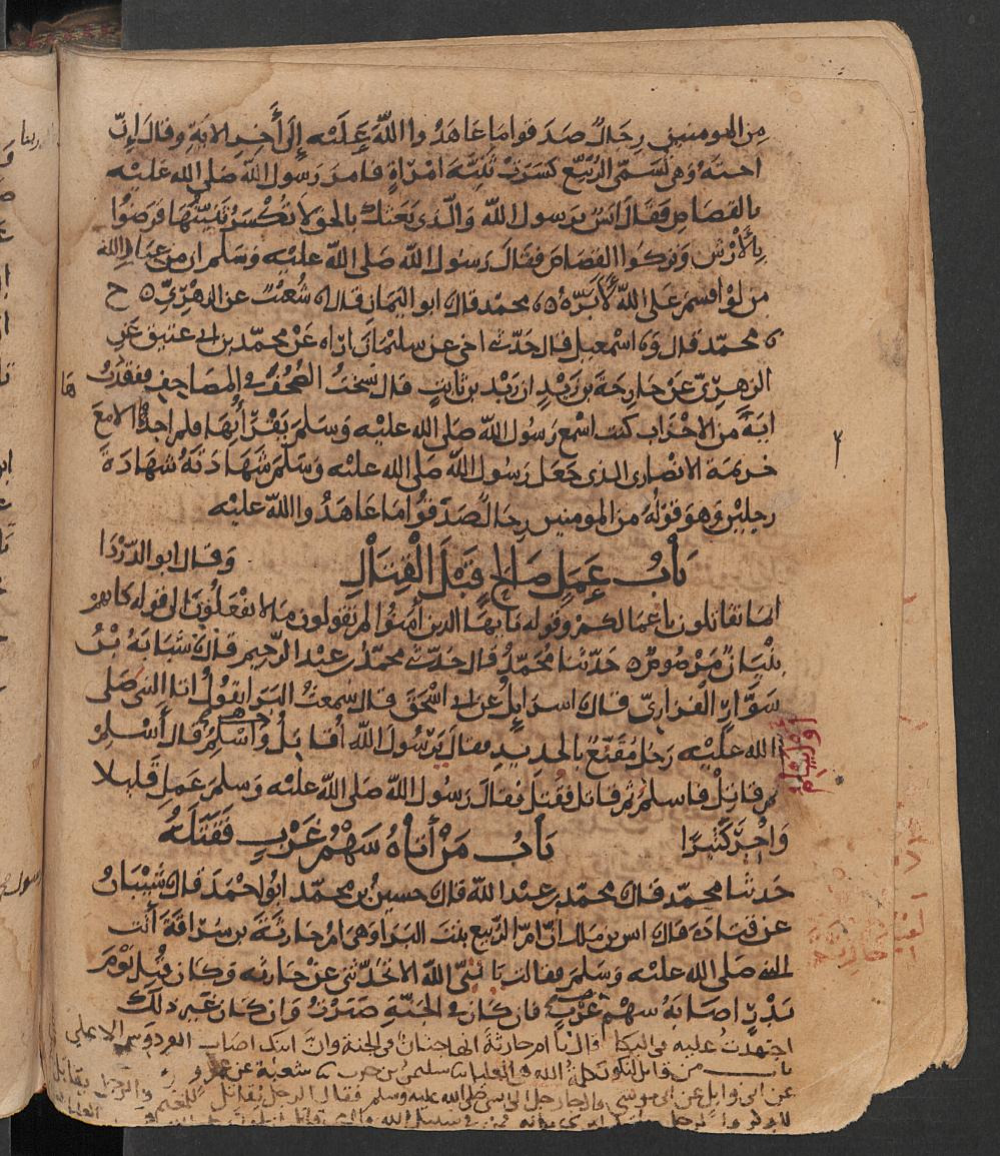 مِن المومنين رِجَالٌ صَدَقوا مَا عَاهَدُوا اللهَ عَلَيْه إلَى أَخِر الايَةِ وقالَ إنَّ
اخته وَهى تُسَمّى الرُّبَيِّع كسَرَتْ ثَنِيَّةَ امْرَأةٍ فامرَ رَسول اللهِ صَلى الله عليْه
بالقصَاصِ فقَالَ انَسٌ يرَسولَ اللهِ وَالّذى بَعَثك بالحقِ لا تُكْسَرُ ثَنِيَّتُهَا فرَضُوا
بِالأرْشِ وَتركُوا القصَاصَ فقالَ رَسُول اللهِ صَلى اللهُ عليْه وَسَلم ان من عبَادِ الله
مَن لَوْ اقسمَ عَلى اللهِ لَأَبَرَّهُ ٥ محمّد قال ابو اليَمان قال شُعَيْبٌ عن الزهْرِيِّ ٥ ح
محمّد قال اسْمعيل قال حَدّثنى اخى عن سليمَانَ اراه عَنْ محمّد بن ابى عتيق عَنِ
الزهرِيّ عَنْ خارجَةَ بنِ زَيْدٍ ان زيْد بن ثابتٍ قال نسَخْتُ الصُّحُفَ في المصَاحِف ففقَدْتُ
ايَةً من الاحْزاب كنت اسْمع رَسُول اللهِ صَلى الله عليْه وَسَلمَ يَقْرَأُ بهَا فلم اجدْهَا الا معَ
خزيمَة الانصارى الذى جَعَل رَسُول اللهِ صَلى الله عليْه وَسَلمَ شَهَادَتَهُ شهَادَةَ
رجليْن وَهوَ قوْلهُ من المومنين رِجَالٌ صَدَقوُا مَا عَاهَدُوا اللهَ عليْه
بَابُ عَمَلٍ صَالحٍ قبْلَ الْقِتَالِ وَقال ابو الدّرْدَا
انما تقاتلون باعْمَالكمْ وَقوله يَايهَا الذين آمَنُوا لم تقولون مَا لا تفعَلُونَ الى قوله كانهمْ
بُنْيَانٌ مَرْصُوصٌ ٥ حَدّثنا مُحَمّدٌ قال حَدّثنى محمّدُ بن عبْد الرّحِيم قال شَبَابَةُ بْنُ
سَوَّارٍ الْفزَارِيّ قال اسرَايلُ عن ابى اسْحَقَ قال سَمعتُ البَرَا يقولُ اتَا النبىَ صَلى
الله عليْه رَجُل مُقَنَّعٌ بالحديدِ فقال يَرسُولَ اللهِ أقاتلُ وَاسْلِمُ قال أَسْلِمْ
ثم قاتِلْ فاسلمَ ثم قاتل فقُتلَ فقالَ رَسُول اللهِ صَلى اللهُ عليْه وَسَلم عَمِلَ قليلا
وَاُجِرَ كَثيرًا بَابُ مَنْ أتاهُ سَهْمُ غَرْبٍ فقَتَلَهُ
حَدثنا محمّد قال محمّد بن عبْد اللهِ قال حسينُ بن محمّد ابُو احْمَدَ قال شَيْبَانُ
عن قتادَة قال انس بن ملك انَّ امّ الرّبيع بنتَ البَرَا وَهىَ امُ حَارثَةَ بن سُرَاقةَ أتَت
النبى صَلى الله عليْه وَسَلمَ فقالت يا نبىَّ اللهِ الا تحدّثنى عَنْ حَارثه وَكان قُتِل يَوْمَ
بَدْرٍ اصَابَهُ سَهْمٌ غَرْبٌ فان كانَ فى الجنّةِ صَبَرْتُ وَان كانَ غيْر ذلكَ
اجتهدتُ عليه فى البكا قال يا ام حارثةَ انها جنانٌ فى الجنة وانَّ ابنك اصاب الفردوس الاعلى
بابُ من قاتل لتكونَ كلمةُ الله هى العليا سليمنُ بن حرب شعبة عن عمرو
عن ابى وايل عن ابى موسى قال جا رجل الى النبى صَلى الله عليه وسلم فقال الرجل يقاتل للمغنم والرجل يقاتل
أو أسلم